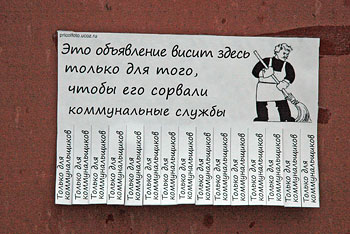 pricolfoto.ucoz.ru
Это объявление висит здесь
только для того,
чтобы его сорвали
коммунальные службы
Только для
коммунальщиков
Только для
коммунальщиков
Только для
коммунальщиков
Только для
коммунальщиков
Только для
коммунальщиков
Только для
коммунальщиков
Только для
коммунальщиков
Только для
коммунальщиков
Только для
коммунальщиков
Только для
коммунальщиков
Только для
коммунальщиков
Только для
коммунальщиков
Только для
коммунальщиков
Только для
коммунальщиков
Только для
коммунальщиков
Только для
коммунальщиков